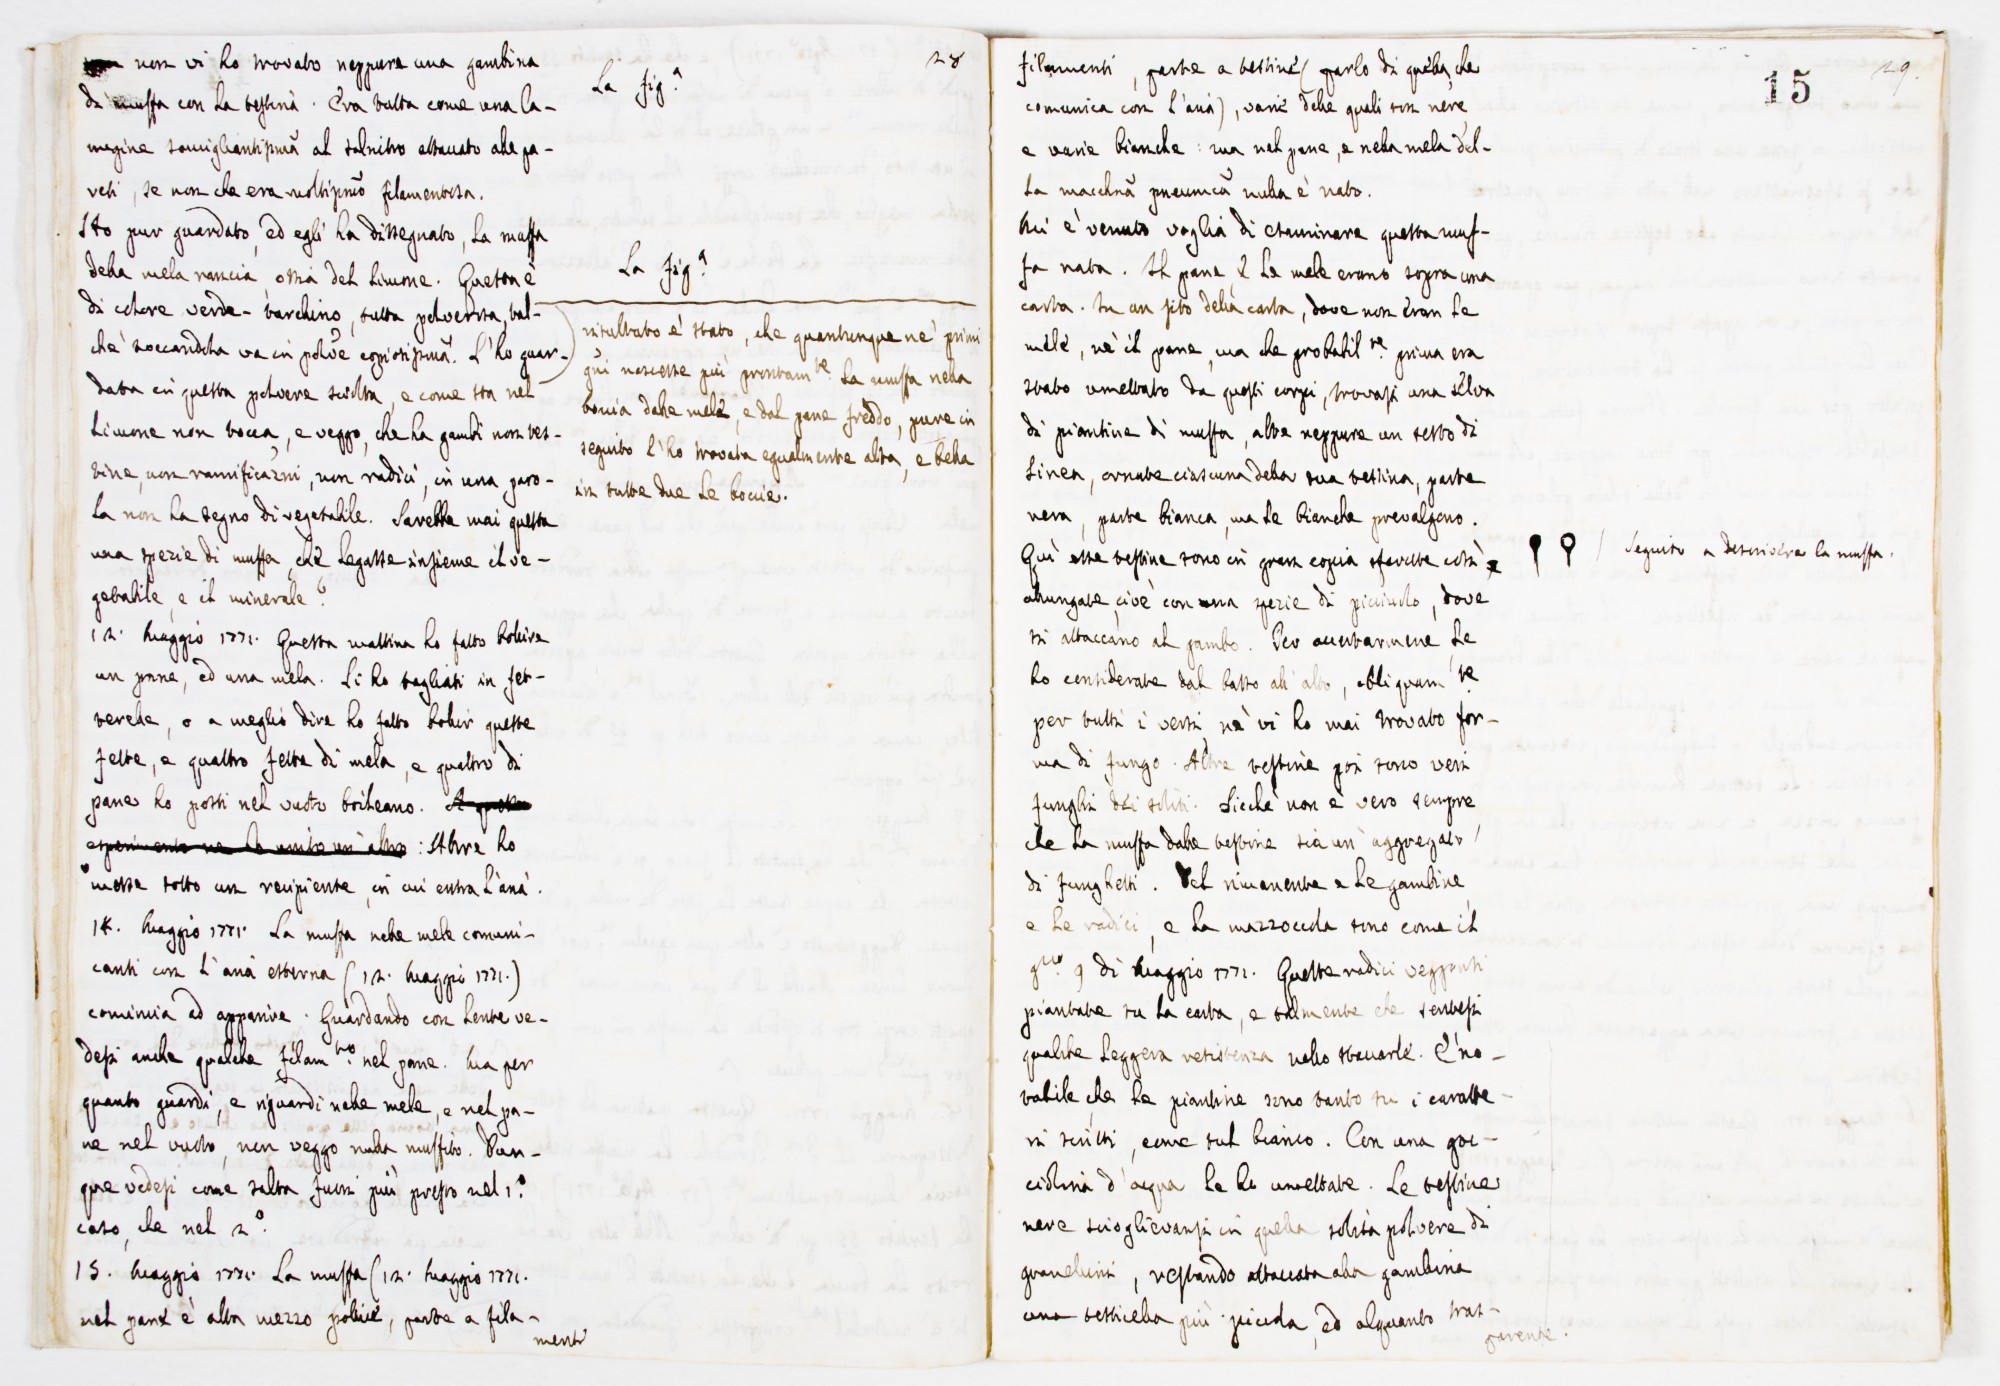 28
non vi ho trovato neppure una gambina
di muffa con la testina. Era tutta come una la-
nugine somigliantissima al salnitro attaccato alle pa-
reti, se non che era moltissimo filamentosa.
Ho pur guardato, ed egli ha dissegnato, la muffa
della mela rancia ossia del Limone. Questa è
di colore verde-turchino, tutta polverosa, tal-
chè toccandola va in polve copiosissima. L'ho guar-
data in questa polvere sciolta, e come sta nel
Limone non tocca, e veggo, che ha gambi non tes-
tine, non ramificazni, non radici, in una paro-
la non ha segno di vegetabile. Sarebbe mai questa
una spezie di muffa, che legasse insieme il ve-
getabile, e il minerale?
12. Maggio 1771. Questa mattina ho fatto bollire
un pane, ed una mela. Li ho tagliati in fet-
terelle, o a meglio dire ho fatto bollir queste
fette, e quattro fette di mela, e quattro di
pane ho posti nel vuoto boileano. A questo
esperimento ne ho unito un altro: Altre ho
messe sotto un recipiente, in cui entra l'aria.
14. Maggio 1771. La muffa nelle mele comuni-
canti con l'aria esterna (12. Maggio 1771.)
comincia ad apparire. Guardando con lente ve-
desi anche qualche filamto. nel pane. Ma per
quanto guardi, e riguardi nelle mele, e nel pa-
ne nel vuoto, non veggo nulla muffito. Dun-
que vedesi come salta fuori più presto nel 1°.
caso, che nel 2°.
15. Maggio 1771. La muffa (12. Maggio 1771.
nel pane è alta mezzo pollice, parte a fila-
menti
La Fig.a
La Fig.a
risultato è stato, che quantunque ne' primi
gni nascesse più prontamte. la muffa nella
boccia dalle mele, e dal pane freddo, pure in
seguito l'ho trovata egualmente alta, e bella
in tutte due le boccie.
29.
15
filamenti, parte a testine (parlo di quella, che
comunica con l'aria), varie delle quali son nere,
e varie bianche: ma nel pane, e nella mela del-
la macchina pneumca nulla è nato.
Mi è venuto voglia di esaminare questa muf-
fa nata. Il pane, e le mele erano sopra una
carta. In un sito della carta, dove non eran le
mele, nè il pane, ma che probabilte. prima era
stato umettato da questi corpi, trovasi una selva
di piantine di muffa, alte neppure un sesto di
linea, ornate ciascuna della sua testina, parte
nera, parte bianca, ma le bianche prevalgono.
Qui esse testine sono in gran copia sferette così
allungate, cioè con una spezie di picciuolo, dove
si attaccano al gambo. Per accertarmene le
ho considerate dal basso all'alto, obliquamte.
per tutti i versi, nè vi ho mai trovato for-
ma di fungo. Altre testine poi sono veri
funghi dei soliti. Sicchè non è vero sempre
che la muffa dalle testine sia un aggregato
di funghetti. Del rimanente e le gambine
e le radici, e la mazzoccola sono come il
gno. 9 di Maggio 1771. Queste radici veggonsi
piantate su la carta, e talmente che sentesi
qualche leggera resistenza nello staccarle. È no-
tabile, che le piantine sono tanto su i caratte-
ri scritti, come sul bianco. Con una goc-
ciolina d'acqua le ho umettate. Le testine
nere scioglievansi in quella solita polvere di
granellini, restando attaccata alla gambina
una vescicella più piccola, ed alquanto tras-
parente.
Seguito a descrivere la muffa.